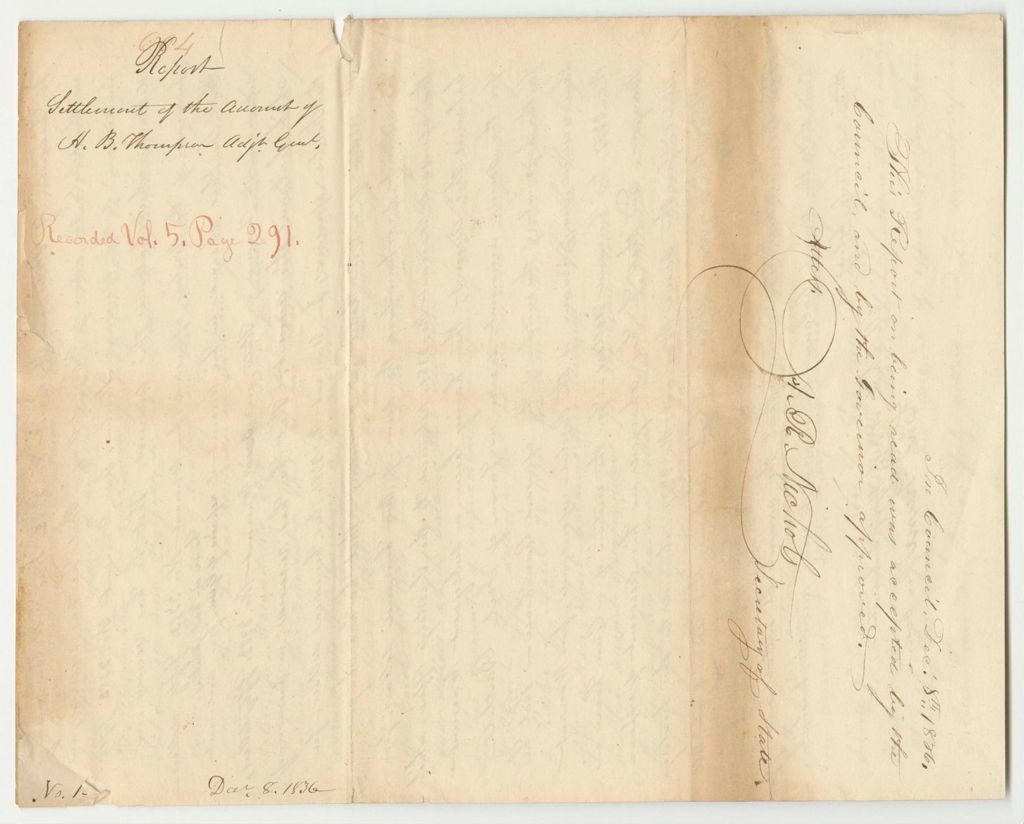 64
Report
Settlement of the Account of
A. B. Thompson Adjt. Genl.
Recorded Vol. 5. Page 291.
No. 1-
Decr. 8. 1836
In Council, Decr. 8th, 1836.
This Report on being read was accepted by the
Council, and by the Governor approved.
Attest.
A. R. Nichols
Secretary of State.